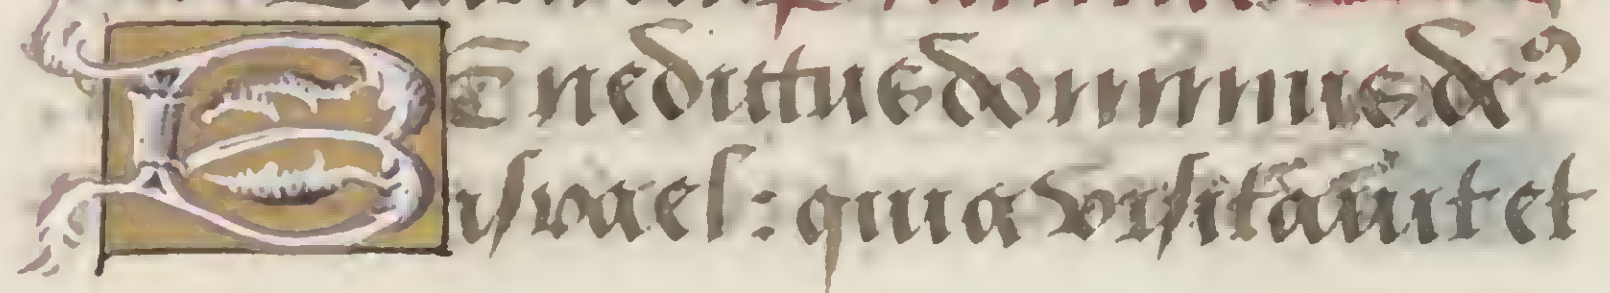 BEnedictus dominus deꝰ
iſrael: quia viſitauit et